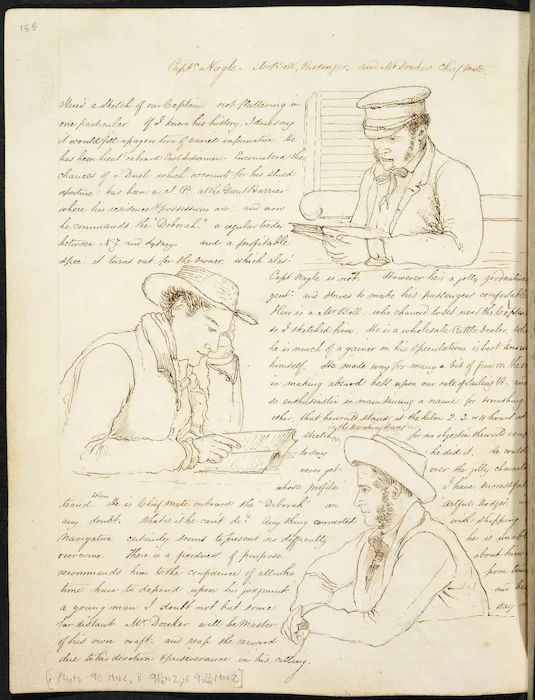 185
Captn. Nagle. Mr Bell, Passenger, and Mr Douker Chief Mate.
Here's a sketch of our Captain. not flattering in
one particular. If I knew his history, I dare say
it would fill a paper or two of varied information. He
has been lieut onboard East Indiamen: Encountered the
chances of a Duel which accounts for his
has been a J. P. at the Great Barrier
where his residence & possessions are: and now
he commands the "Deborah" a regular trader
between N.Z. and Sydney. and a profitable
spec. it turns out for the owner, which alas!
Capt Nagle is not. However he is a jolly good natured
gent: and strives to make his passengers comfortable
Here is a Mr Bell, who chanced to sit near the Captain
so I sketched him. He is a wholesale Cattle dealer.
he is much of a gainer in his speculations is best known
himself. He made way for many a bit of fun on the
in making absurd bets upon our rate of sailing &c. and
so enthusiastic in maintaining a name for something
other that he would stand at the helm 2. 3. or 4 hours at
sketch
for no object in the world
to say
he did it. He could
never get
over the jolly character
whose profile
I have successfully
below
He is Chief Mate onboard the "Deborah" an
artful Dodger
any doubt. What is it he can't do? Any thing connected
with shipping
Navigation certainly seems to present no difficulty
he is
overcome. There is a fixedness of purpose
about him
recommends him to the confidence of all who
from time
time have to depend upon his judgment
and
a young man I doubt not but some
day
far distant Mr. Douker will be Master
of his own craft. and reap the reward
due to his devotion & perseverance in his calling.